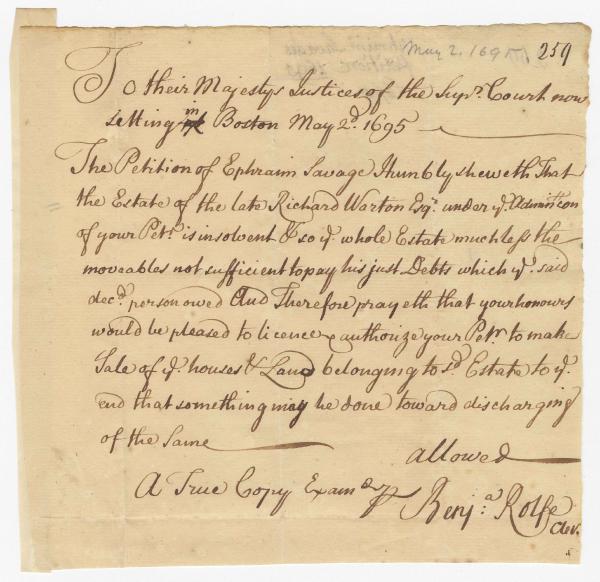 May 2. 1695 259
To their Majestys Justices of the Supr. Court now
sitting in Boston May 2d. 1695
The Petition of Ephraim Savage Humbly sheweth That
the Estate of the late Richard Warton Esqr. under ye. Administrcon
of your Petr. is insolvent & so ye. whole Estate much less the
moveables not sufficient to pay his just Debts which ye. said
decd. person owed And Therefore prayeth that your honours
would be pleased to licence & authorize your Petr. to make
Sale of ye. houses & Land belonging to sd. Estate to ye.
end that something may be done toward discharging
of the Same
allowed
A True Copy Examd. p
Benja. Rolfe
Cler.